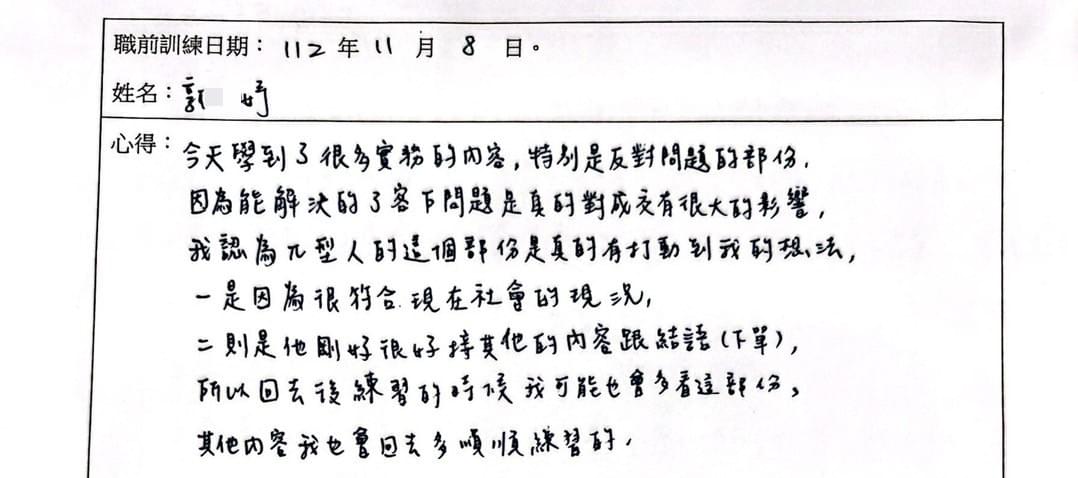 職前訓練日期：112 年 11 月 8 日。
姓名：郭 婷
心得：今天學到了很多實務的內容，特別是反對問題的部份，
因為能解決的了客下問題是真的對成交有很大的影響，
我認為π型人的這個部份是真的有打動到我的想法，
一是因為很符合現在社會的現況，
二則是他剛好很好接其他的內容跟結語（下單），
所以回去後練習的時候我可能也會多看這部份，
其他內容我也會回去多順順練習的，